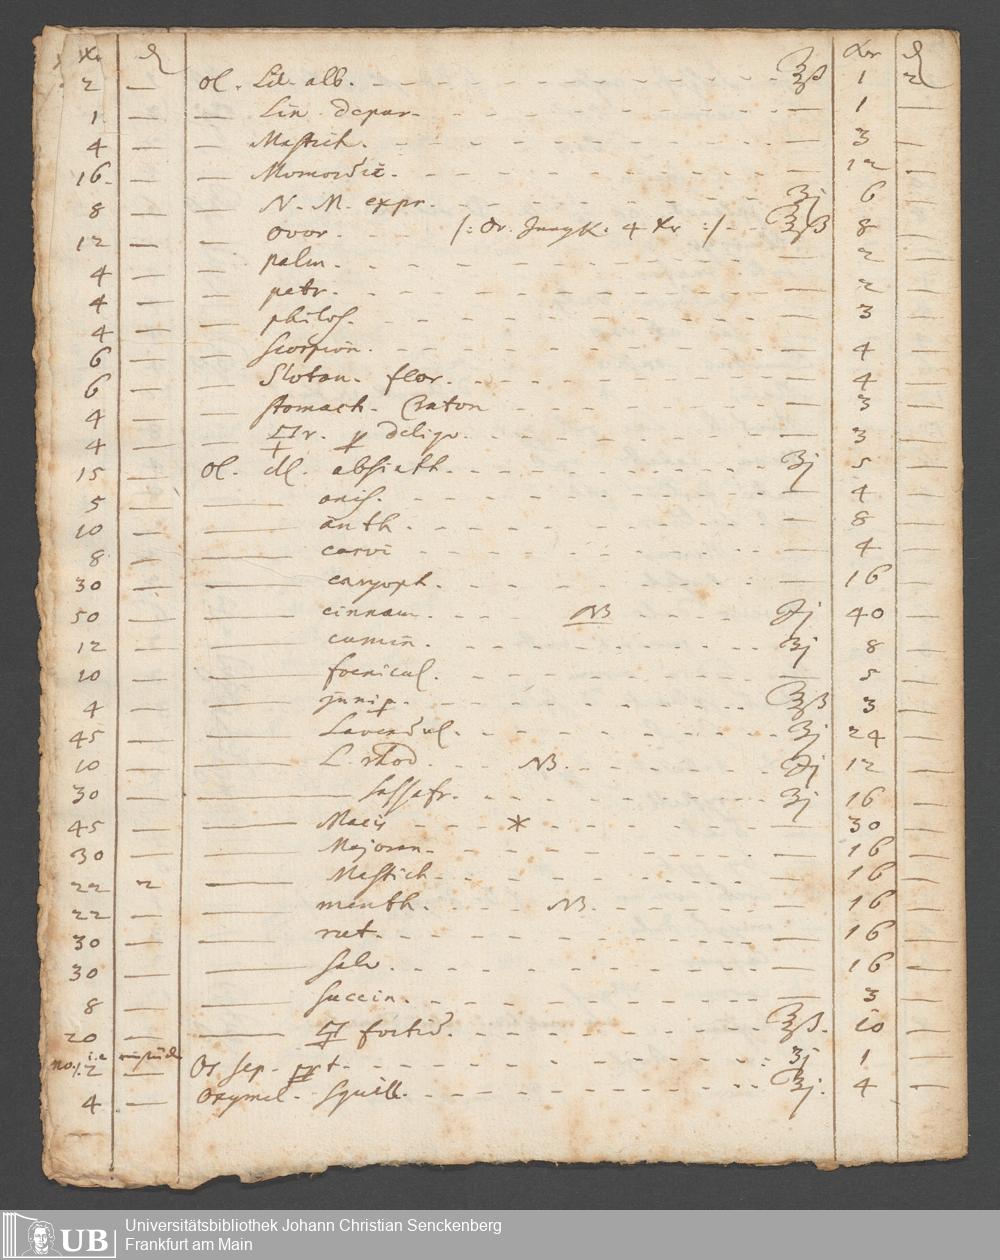 Xr ₰ Xr ₰
2 — Ol. Lil. alb. ℥ß 1 2
1 — — Lin. depur. — 1 —
4 — — Mastich. — 3 —
16. — — Momordic. — 12 —
8 — — N. M. expr. ʒj 6 —
12 — — ovor. /: Dr. Jungk. 4 Xr :/ ℥ß 8 —
4 — — palm. — 2 —
4 — — petr. — 2 —
4 — — philos. — 3 —
6 — — Scorpion. — 4 —
6 — — flor. — 4 —
4 — — stomach. Craton — 3 —
4 — — — 3 —
15 — Ol. dll. absinth. ʒj 5 —
5 — — anis. — 4 —
10 — — anth. — 8 —
8 — — carvi — 4 —
30 — — caryoph. — 16 —
50 — — cinnam. NB ℈j 40 —
12 — — cumin. ʒj 8 —
10 — — foenicul. — 5 —
4 — — junip. ℥ß 3 —
45 — — Lavendul. ʒj 24 —
10 — — L. rhod. NB. ℈j 12 —
30 — — sassafr. ʒj 16 —
45 — — Macis * — 30 —
30 — — Majoran. — 16 —
22 2 — Mastich. — 16 —
22 — — menth. NB. — 16 —
30 — — rut. — 16 —
30 — — salv. — 16 —
8 — — succin. — 3 —
20 — — foetid. ℥ß. 10 —
2 — Os sep. ʒj 1 —
4 — Oxymel. Squill. ℥j. 4 —
UB Universitätsbibliothek Johann Christian Senckenberg
Frankfurt am Main